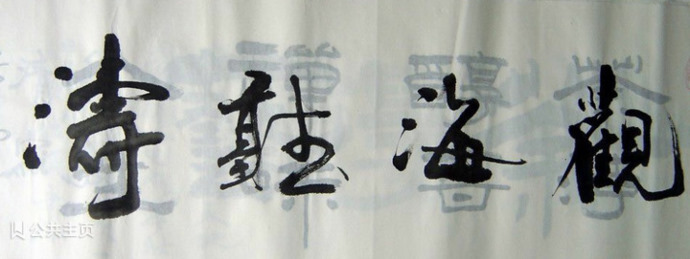 觀海聽濤
公共主页